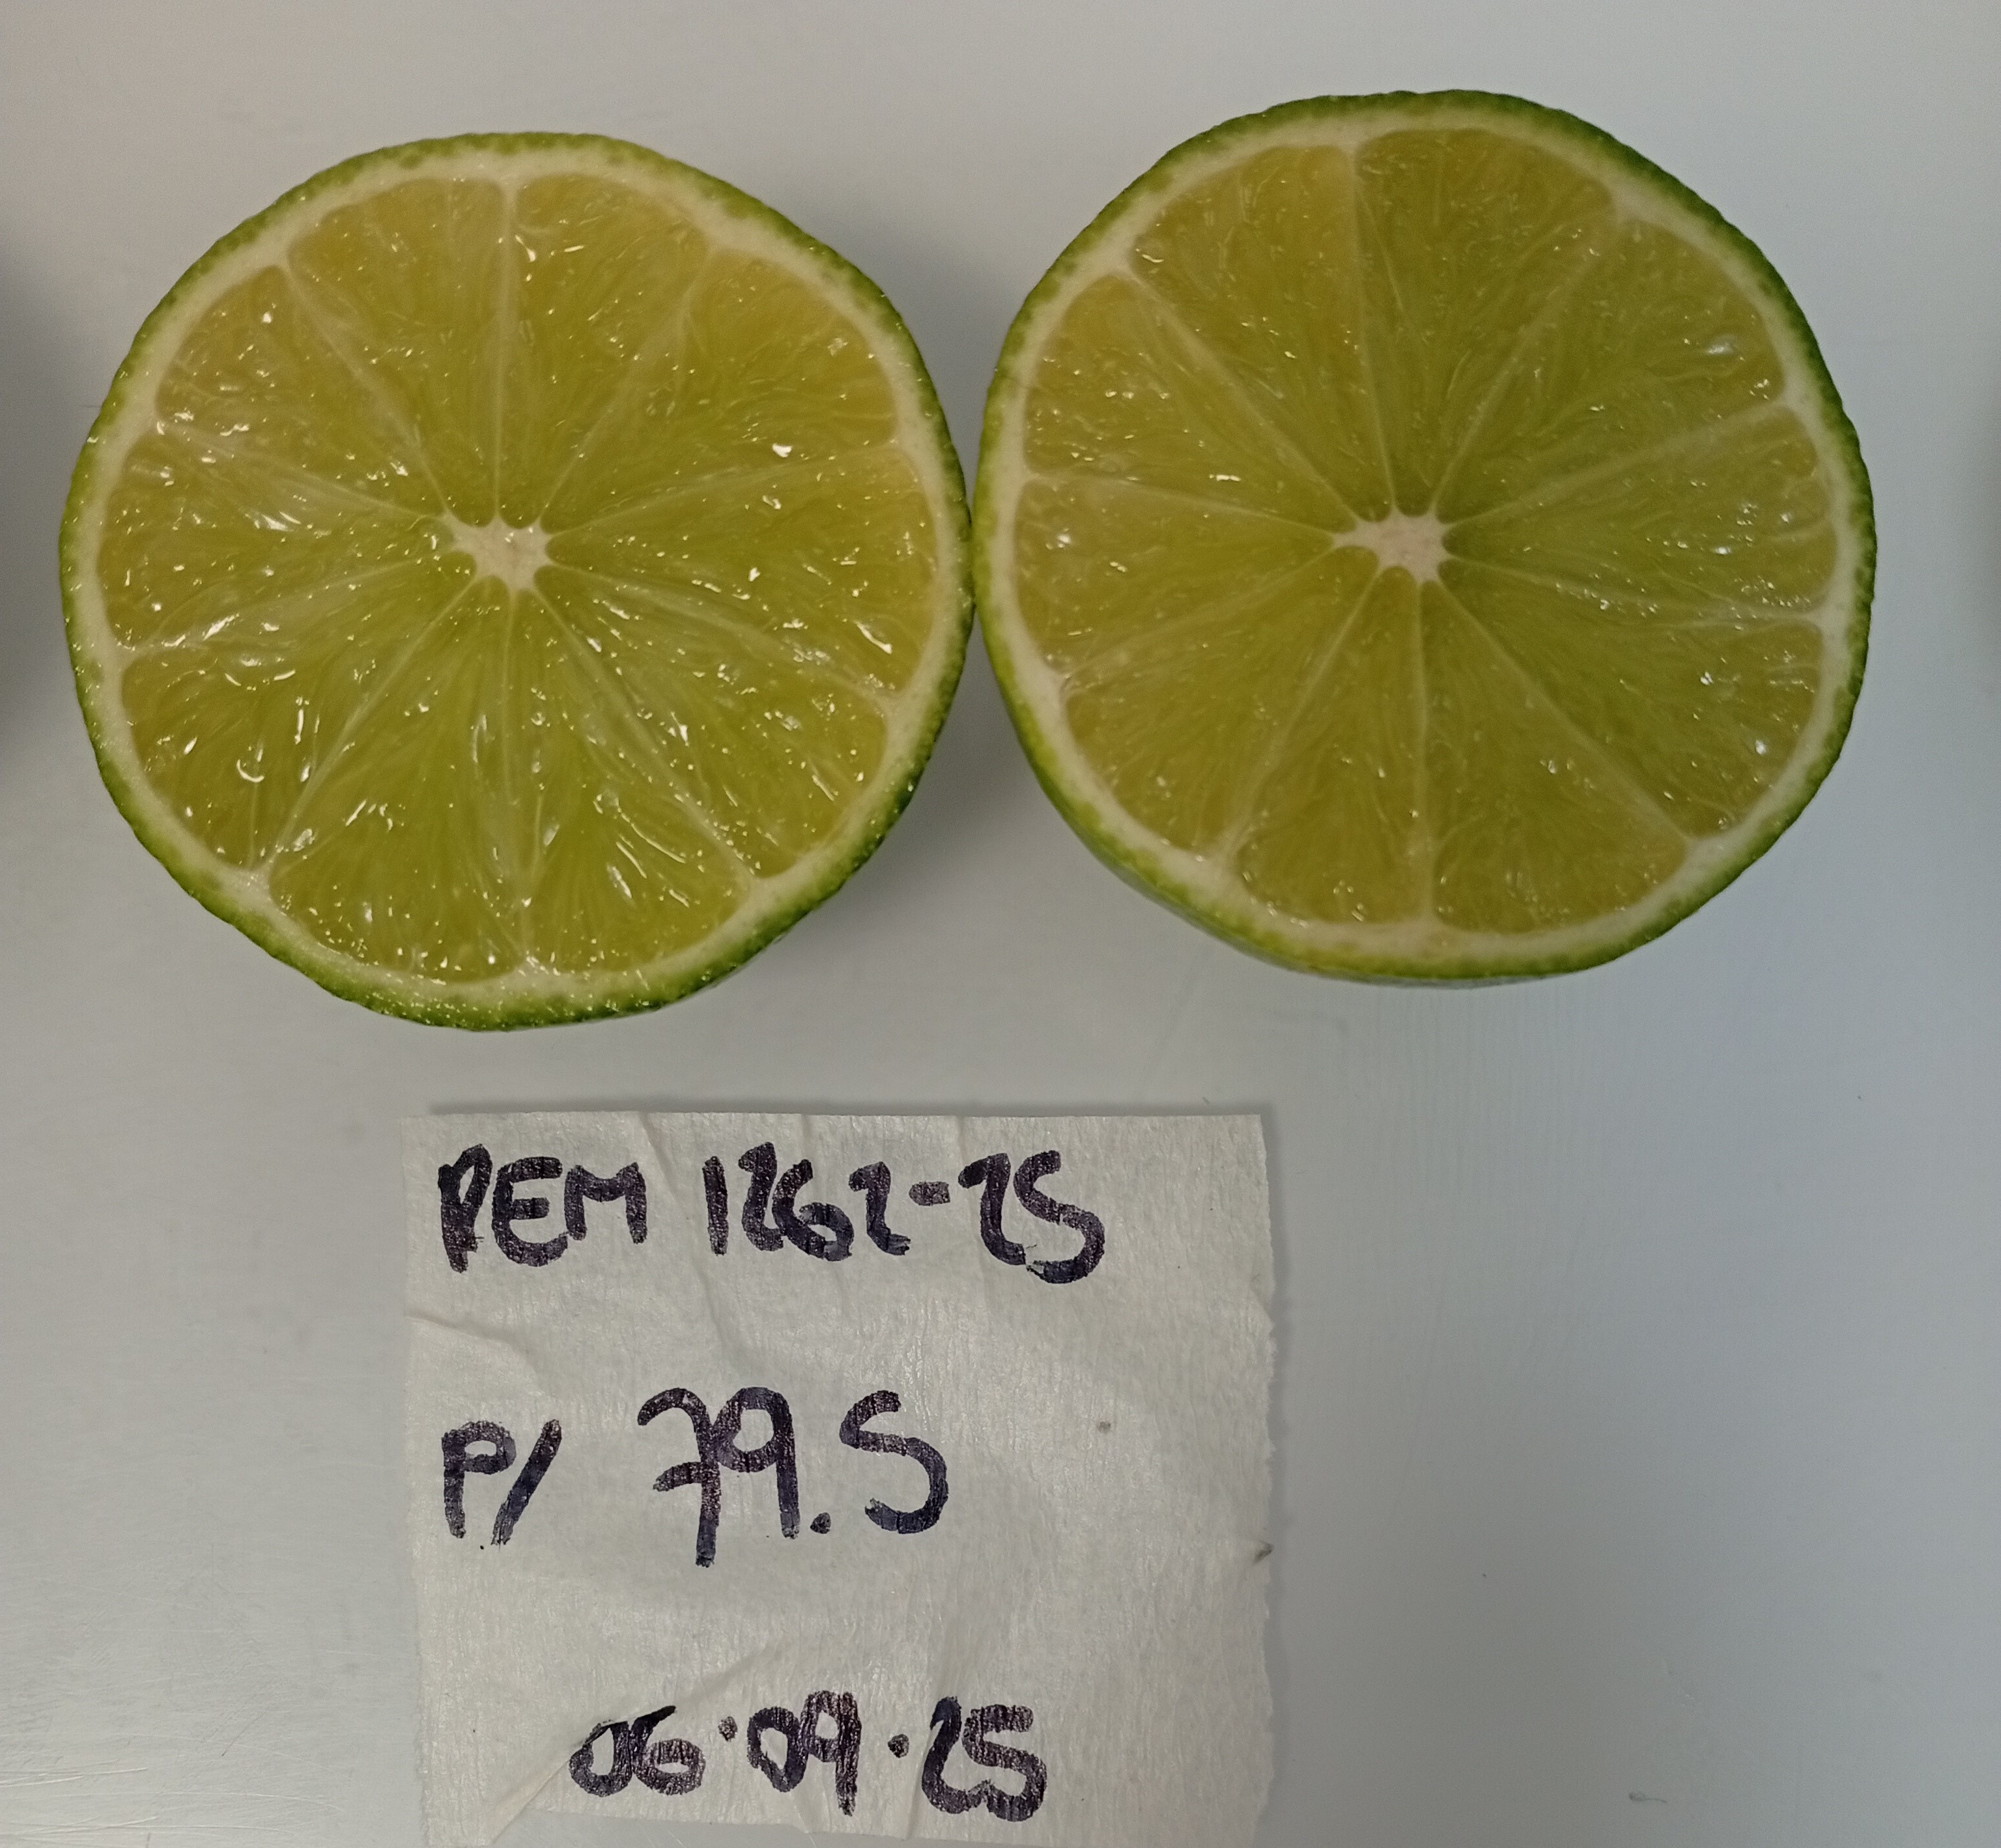 REM 1262-25
P/ 79.5
06.09.25